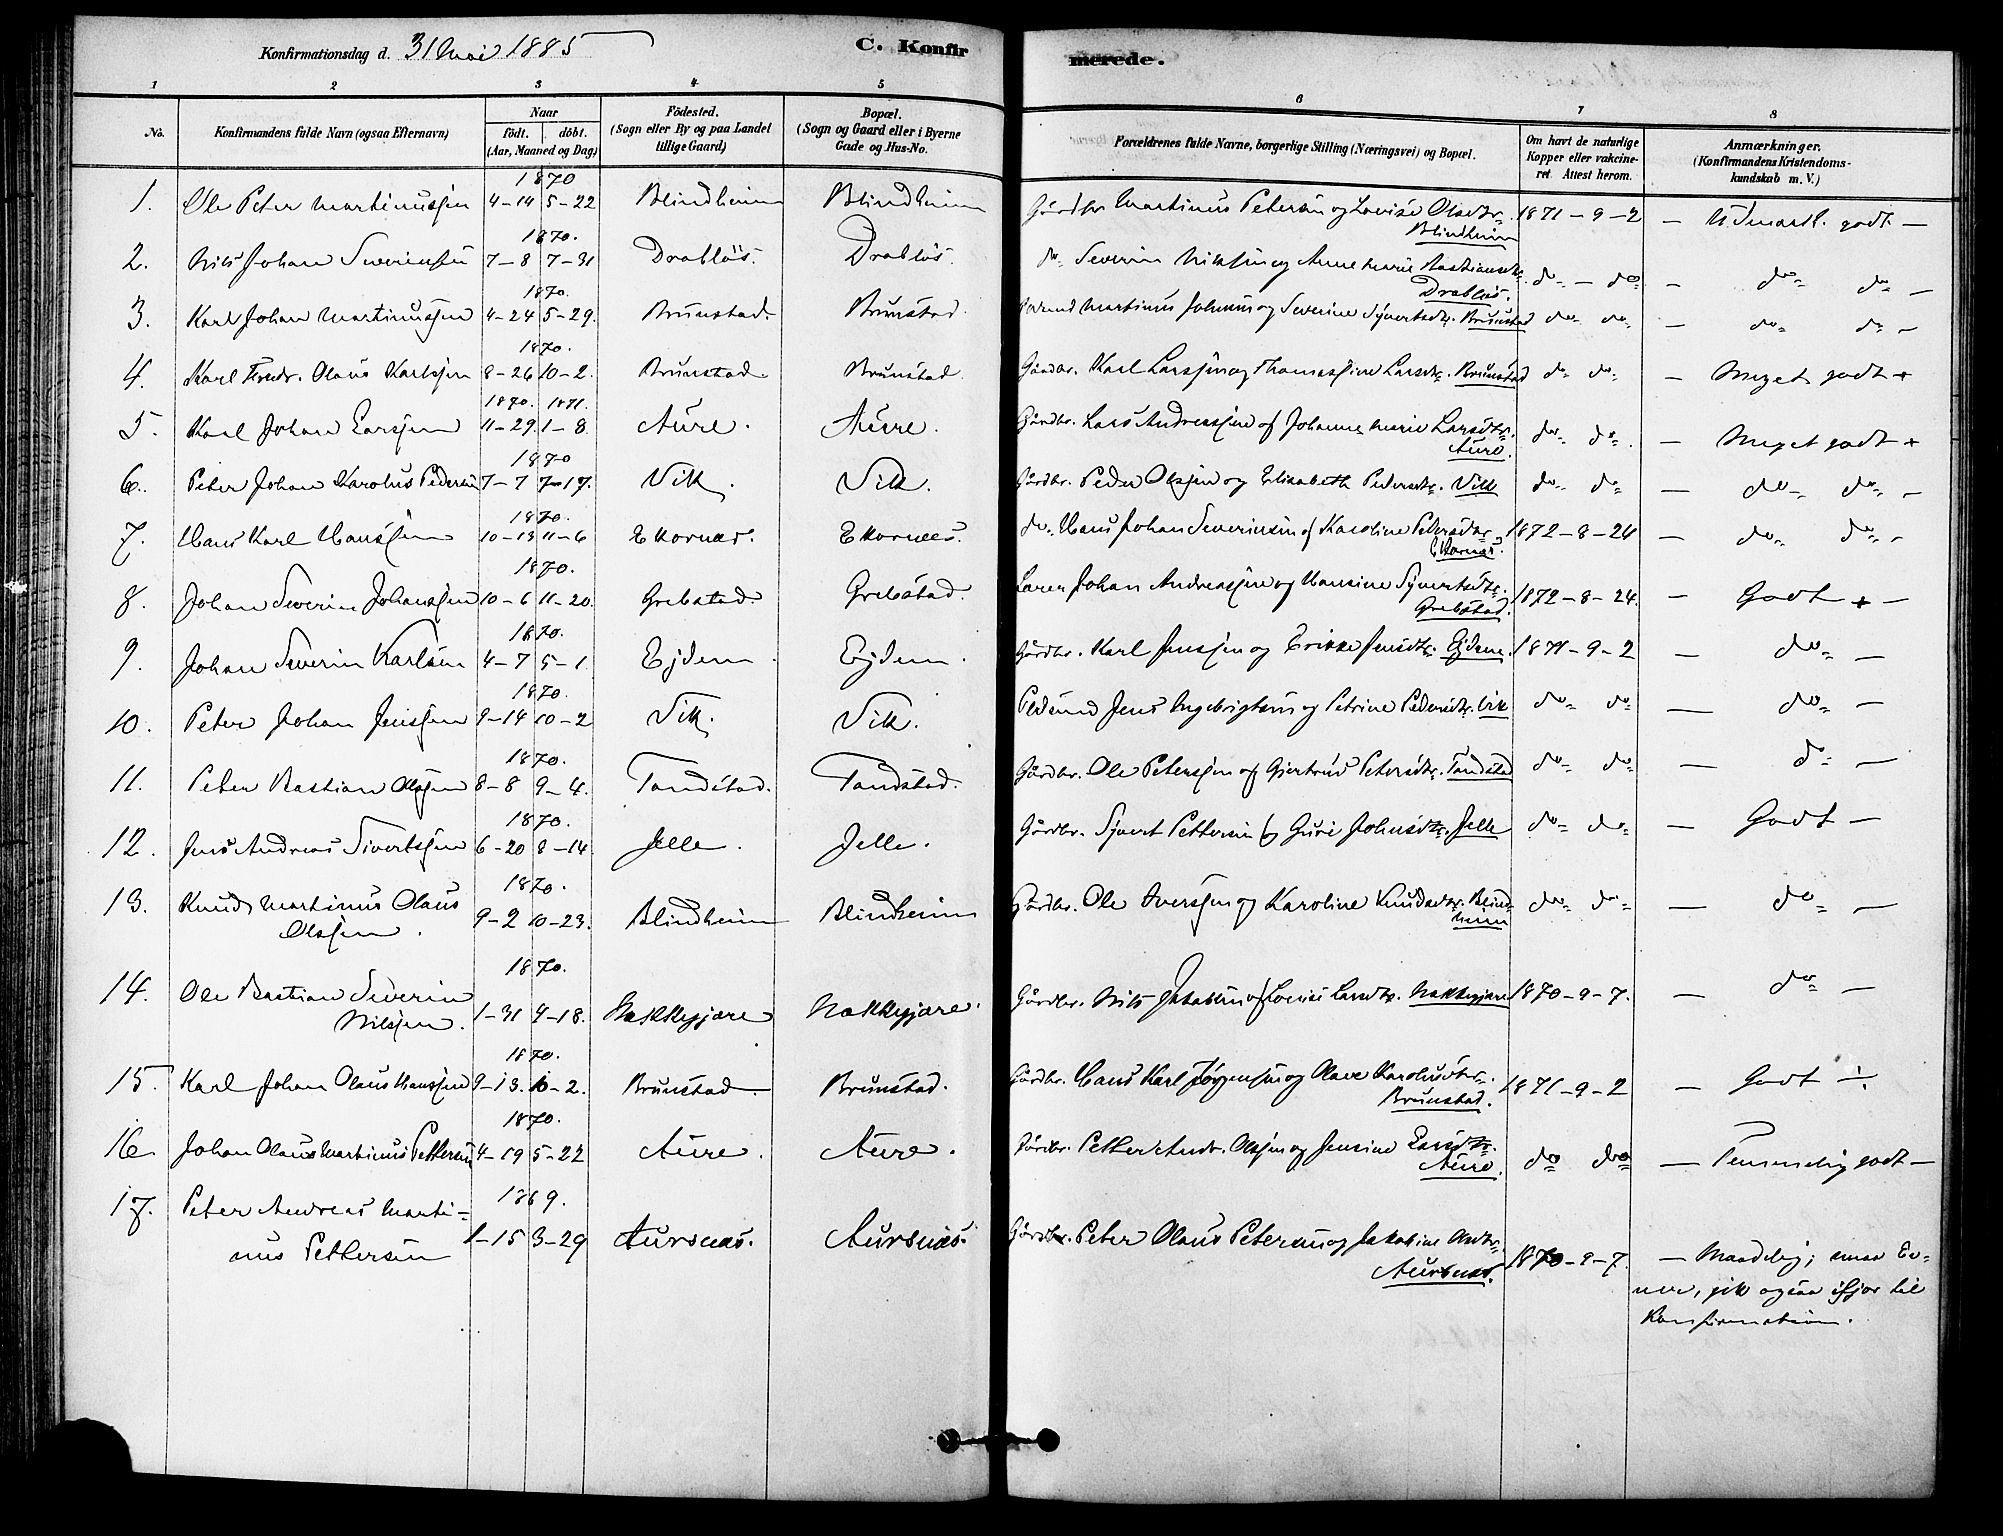 Konfirmationsdag d. 31 Mai 1885
C. Konfirmerede.
1 2 3 4 5 6 7 8
No. Konfirmandens fulde Navn (ogsaa Efternavn) Naar födt. döbt. (Aar, Maaned og Dag) Födested. (Sogn eller By og paa Landet tillige Gaard) Bopæl. (Sogn og Gaard eller i Byerne Gade og Hus-No. Forældrenes fulde Navne, borgerlige Stilling (Næringsvei) og Bopæl. Om havt de naturlige Kopper eller vakcineret. Attest herom. Anmærkninger. (Konfirmandens Kristendomskundskab m. V.)
1870
1. Ole Peter Martinussen 4-14 5-22 Blindheim Blindheim Gårdbr. Martinus Petersen og Lovise Olsdtr. Blindheim 1871-9-2 — Udmærk. godt —
1870.
2. Nils Johan Severinsen 7-8 7-31 Drabløs. Drabløs. do. Severin Nilssen og Anne Marie Bastiansdtr. Drabløs. do. — do. — do. do. —
1870.
3. Karl Johan Martinussen 4-24 5-29. Brunstad. Brunstad. Martinus Johnsen og Severine Sjvertsdtr. Brunstad do. do. — do. do. —
1870.
4. Karl Fredr. Olaus Karlsen 8-26 10-2. Brunstad. Brunstad. Gårdbr. Karl Larssen og Thomassine Larsdtr. Brunstad do. do. — Meget godt +
1870. 1871.
5. Karl Johan Larssen 11-29. 1-8. Aure. Aure. Gårdbr. Lars Andreassen og Johanne Marie Larsdtr. Aure. do. do. — Meget godt +
1870
6. Peter Johan Karolus Pedersen 7-7 7-17. Vik. Vik. Gårdbr. Peder Olssen og Elisabeth Pedersdtr. Vik do. do. — do. do. —
1870.
7. Hans Karl Hanssen 10-13 11-6 Ekornæs. Ekornæs. do. Hans Johan Severinsen og Karoline Pedersdtr. Ekornæs. 1872-8-24 — do. do. —
1870.
8. Johan Severin Johanssen 10-6 11-20. Grebstad. Grebstad. Johan Andreassen og Hansine Sjvertsdtr. Grebstad. 1872-8-24. — Godt + —
1870.
9. Johan Severin Karlsen 4-7 5-1. Ejdem. Ejdem. Gårdbr. Karl Jenssen og Erikke Jensdtr. Ejdem. 1871-9-2 — do. —
1870.
10. Peter Johan Jenssen 9-14 10-2 Vik. Vik. Jens Ingebrigtsen og Petrine Pedersdtr. Vik do. do. — do. —
1870.
11. Peter Bastian Olssen 8-8 9-4. Tandstad. Tandstad. Gårdbr. Ole Peterssen og Gjertrud Petersdtr. Tandstad do. do. — do. —
1870.
12. Jens Andreas Sivertssen 6-20 8-14. Jelle. Jelle. Gårdbr. Sjvert Pettersen og Guri Johnsdtr. Jelle do. do. — Godt —
1870.
13. Knud Martinus Olaus Olssen. 9-2 10-23. Blindheim Blindheim Gårdbr. Ole Iverssen og Karoline Knudsdtr. Blindheim do. do. — do. —
1870.
14. Ole Bastian Severin Nilssen. 1-31 4-18. Nakkegjære Nakkegjære. Gårdbr. Nils Jakobsen og Lovise Larsdtr. Nakkegjære 1870-9-7. — do. —
1870.
15. Karl Johan Olaus Hanssen 9-13. 10-2. Brunstad. Brunstad. Gårdbr. Hans Karl Jørgensen og Olave Karolusdtr. Brunstad. 1871-9-2 — Godt ÷
1870.
16. Johan Olaus Martinus Pettersen 4-19 5-22 Aure. Aure. Gårdbr. Petter Andr. Olssen og Jensine Larsdtr. Aure. do do — Temmelig godt —
1869.
17. Peter Andreas Martinus Pettersen 1-15 3-29 Aursnæs. Aursnæs. Gårdbr. Peter Olaus Petersen og Jakobine Andr. Aursnæs. 1870-9-7. — Maadelig; smaa Evner, gik ogsaa ifjor til Konfirmation.